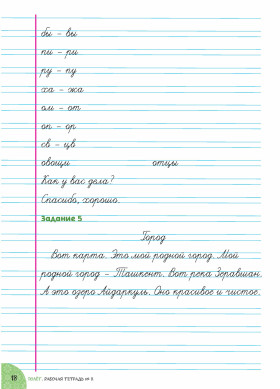 бы – вы
пи – ри
ру – пу
ха – жа
ом – от
оп – ор
св – цв
овощи отцы
Как у вас дела?
Спасибо, хорошо.
Задание 5
Город
Вот карта. Это мой родной город. Мой
родной город – Ташкент. Вот река Зеравшан.
А это озеро Айдаркуль. Оно красивое и чистое.
18 РАБОЧАЯ ТЕТРАДЬ №